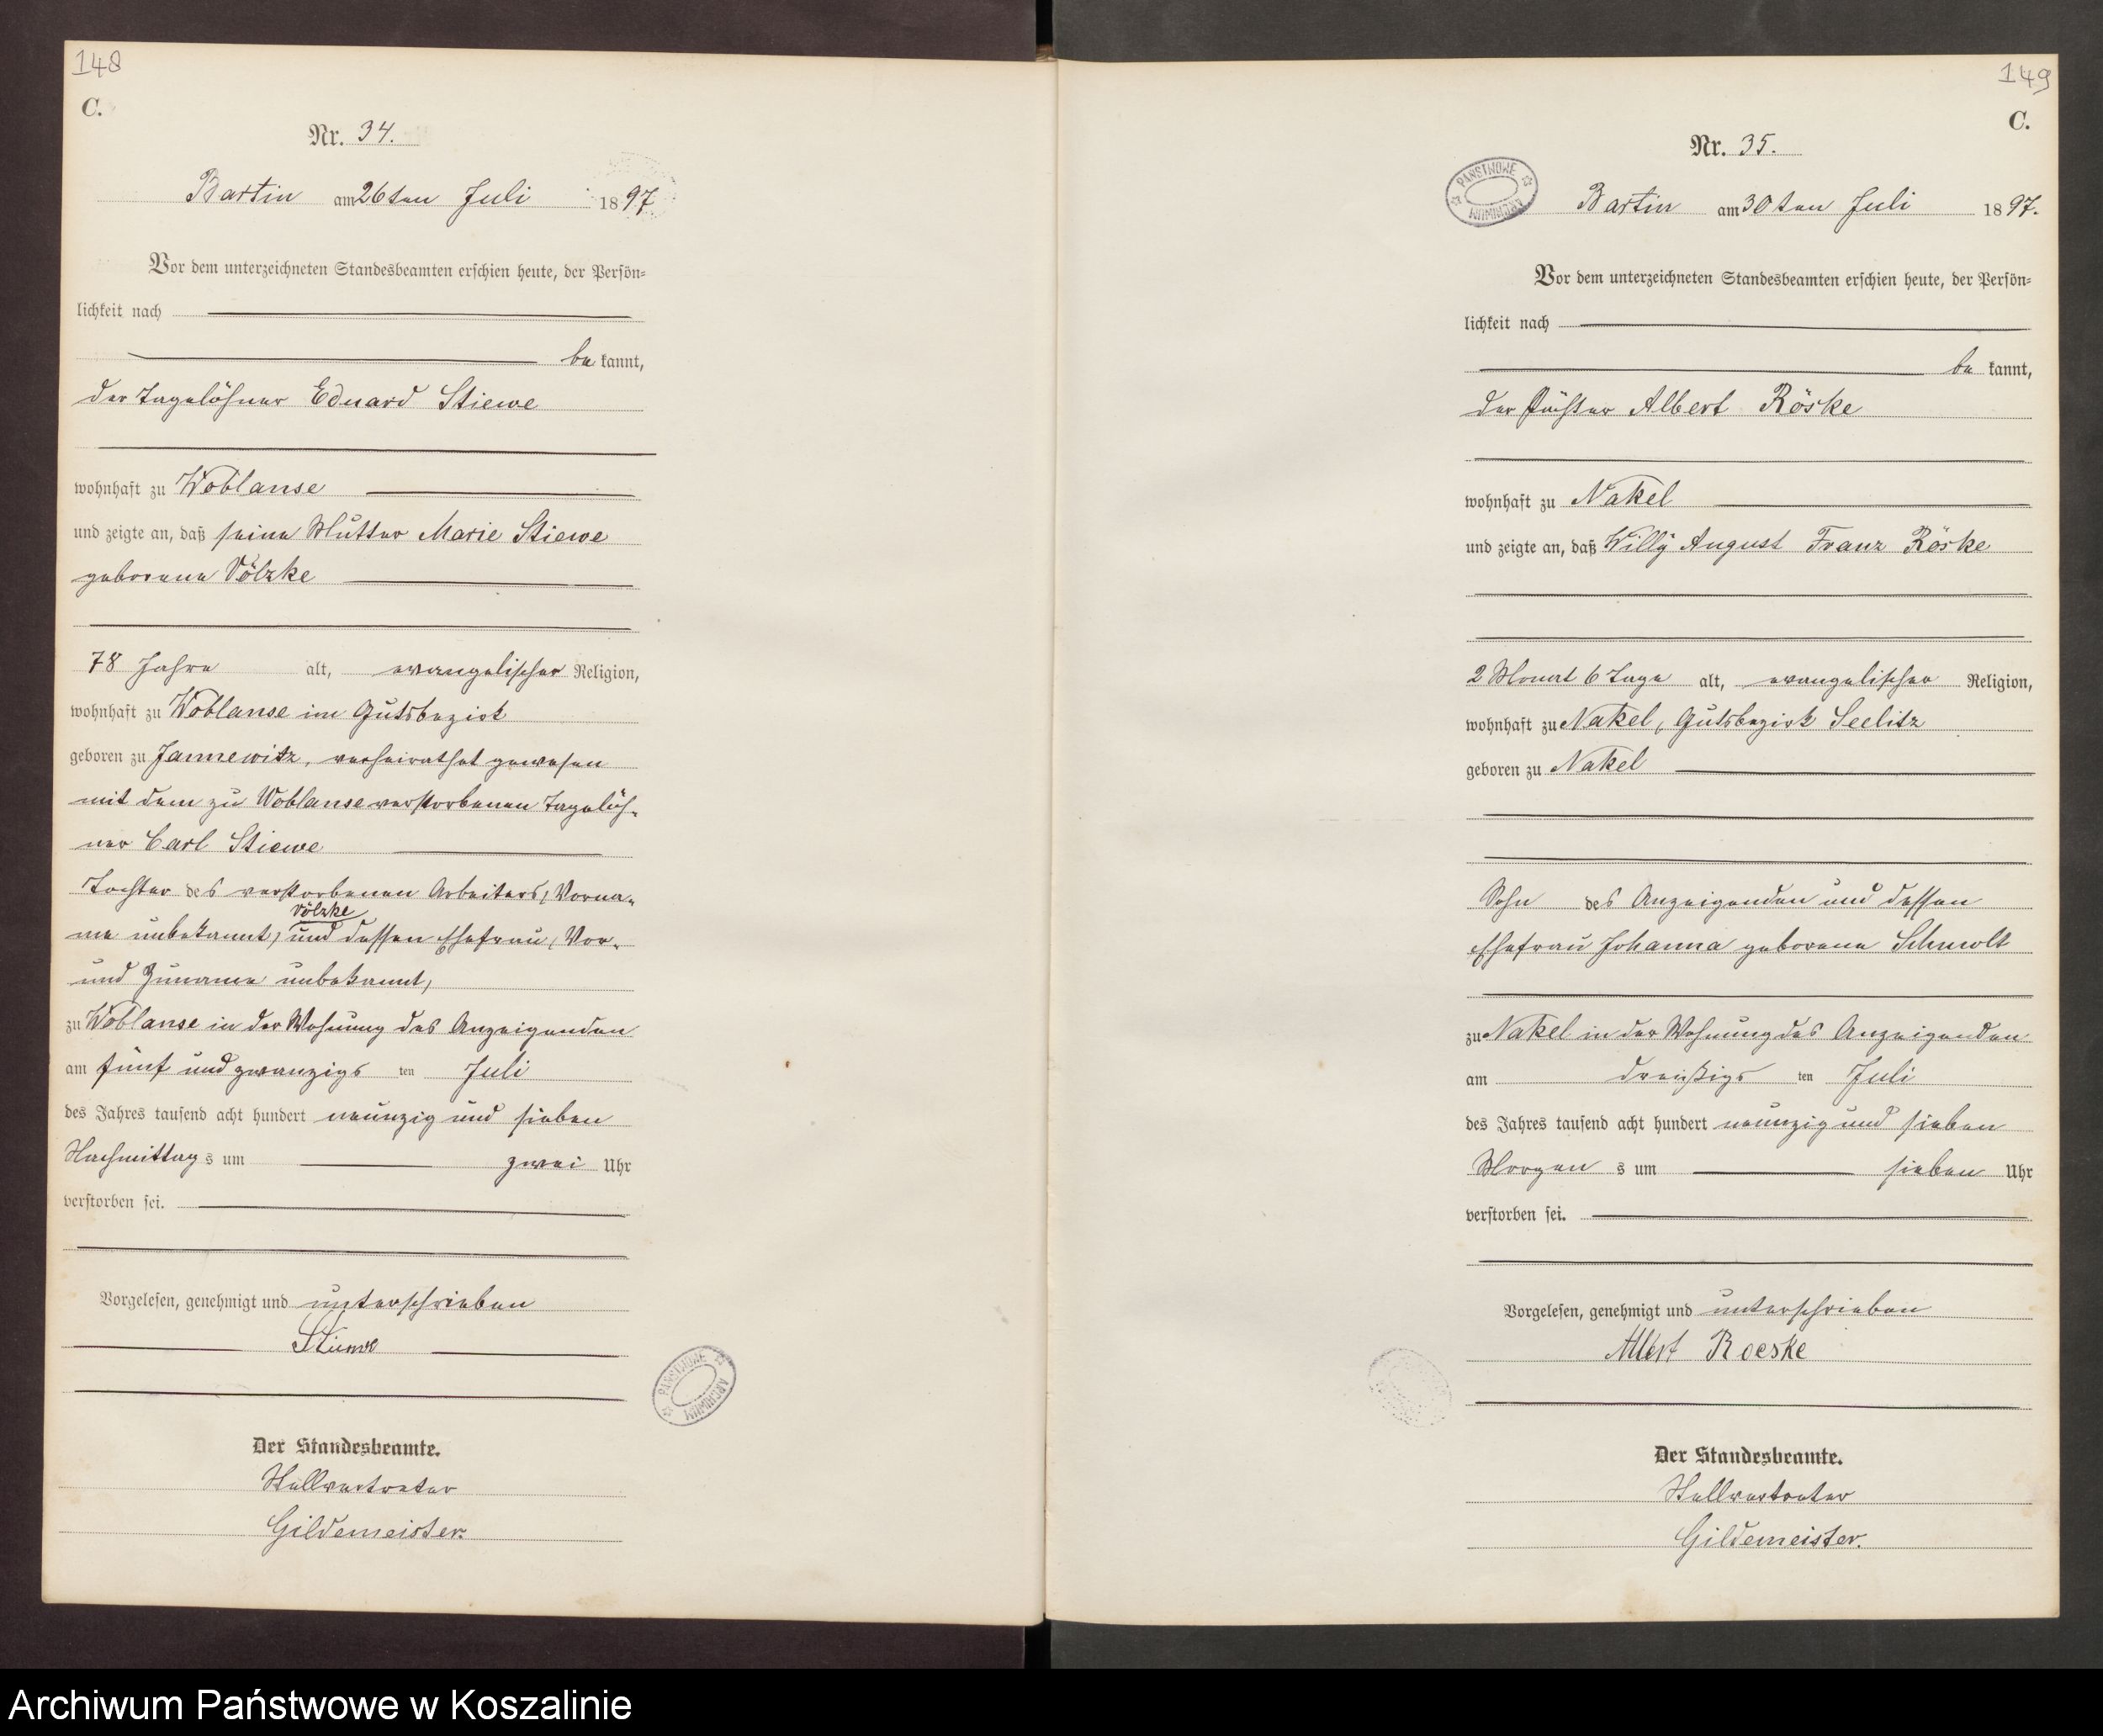 148
C.
Nr. 34.
Bartin am 26ten Juli 1897.
Vor dem unterzeichneten Standesbeamten erschien heute, der Persön-
lichkeit nach
be kannt,
der Tagelöhner Eduard Stiewe
wohnhaft zu Woblanse
und zeigte an, daß seine Mutter Marie Stiewe
geborene Völzke
78 Jahre alt, evangelischer Religion,
wohnhaft zu Woblanse im Gutsbezirk
geboren zu Jannewitz, verheirathet gewesen
mit dem zu Woblanse verstorbenen Tagelöh-
ner Carl Stiewe
Tochter des verstorbenen Arbeiters, Vorna-
Völzke
me unbekannt, und dessen Ehefrau, Vor-
und Zuname unbekannt,
zu Woblanse in der Wohnung des Anzeigenden
am fünf und zwanzigs ten Juli
des Jahres tausend acht hundert neunzig und sieben
Nachmittag s um zwei Uhr
verstorben sei.
Vorgelesen, genehmigt und unterschrieben
Stiewe
PAŃSTWOWE ARCHIWUM
Der Standesbeamte.
Stellvertreter
Gildemeister.
149
C.
Nr. 35.
PAŃSTWOWE ARCHIWUM
Bartin am 30ten Juli 1897.
Vor dem unterzeichneten Standesbeamten erschien heute, der Persön-
lichkeit nach
be kannt,
der Pächter Albert Röske
wohnhaft zu Nakel
und zeigte an, daß Willy August Franz Röske
2 Monat 6 Tage alt, evangelischer Religion,
wohnhaft zu Nakel, Gutsbezirk Seelitz
geboren zu Nakel
Sohn des Anzeigenden und dessen
Ehefrau Johanna geborene Schmolt
zu Nakel in der Wohnung des Anzeigenden
am dreißigs ten Juli
des Jahres tausend acht hundert neunzig und sieben
Morgen s um sieben Uhr
verstorben sei.
Vorgelesen, genehmigt und unterschrieben
Albert Roeske
Der Standesbeamte.
Stellvertreter
Gildemeister.
Archiwum Państwowe w Koszalinie